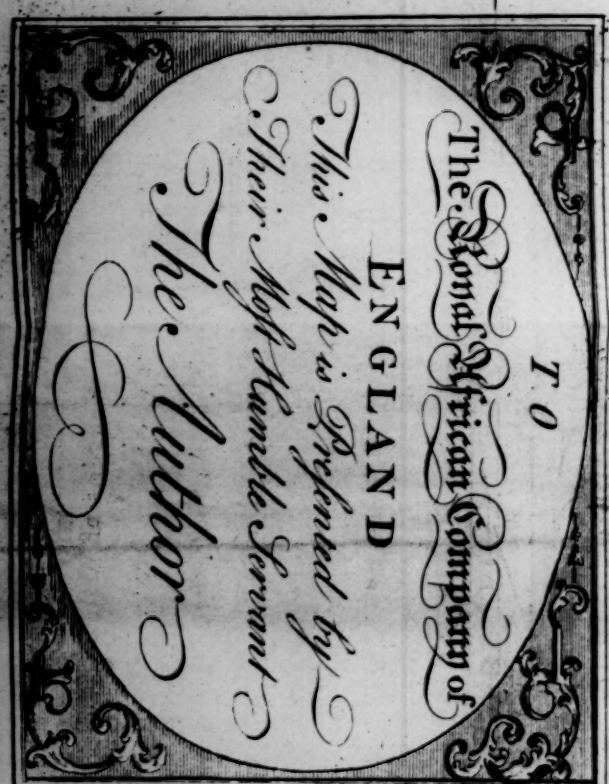 TO
The Royal African Company of
ENGLAND
This Map is Presented by
Their Most Humble Servant
The Author